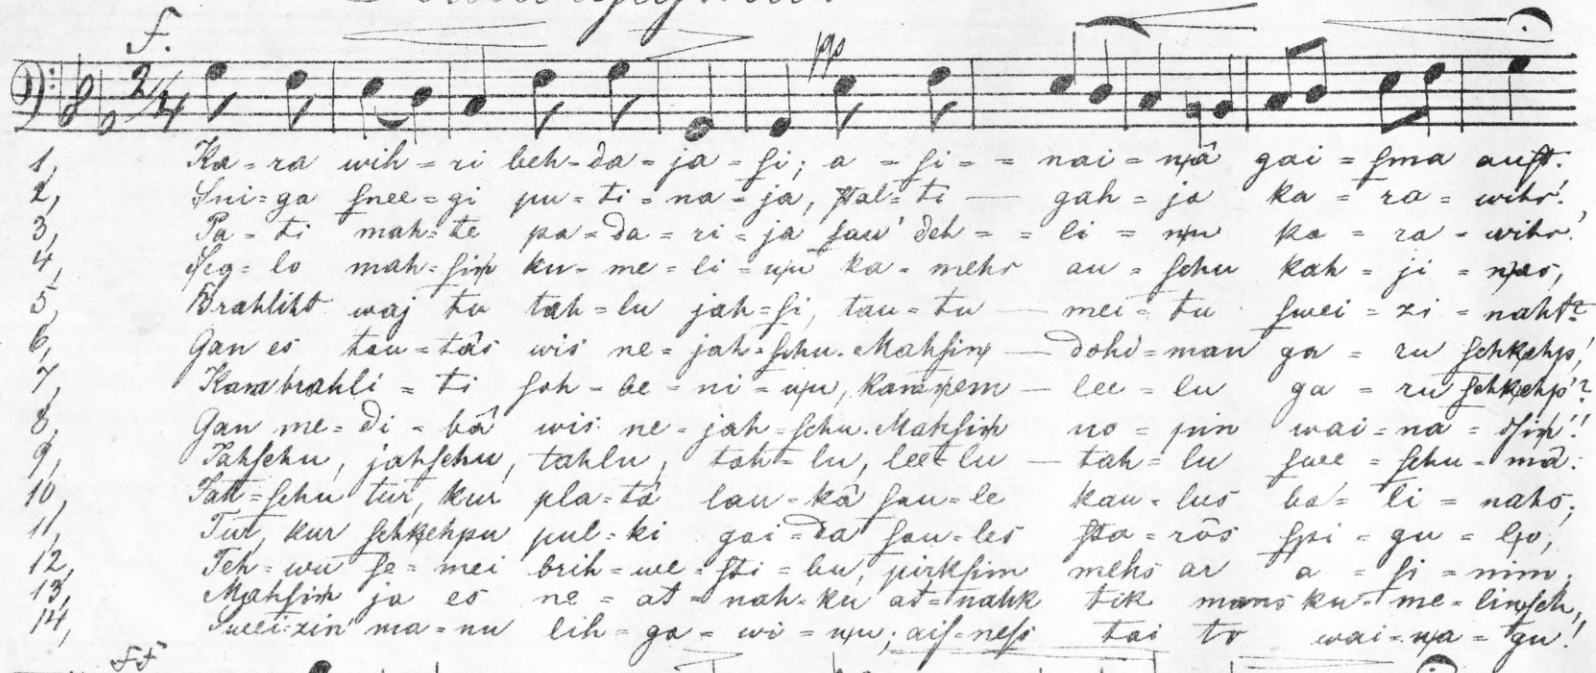 f.
pp
1, Ka = ra wih = ri beh = da = ja = ſi; a = ſi = = nai = nâ gai = ſma auſt.
2, Sni = ga ſnee = gi pu = ti = na = ja, ſtal = ti — gah = ja ka = ra = wihr.
3, Pa = ti mah = te pa = da = ri = ja ſau' deh = = li = nu ka = ra = wihr.
4, Seg = lo mah = ſiņ ku = me = li = ņu ka = mehr au = ſchu kah = ji = ņas,
5, Brahliht waj tu tah = lu jah = ſi, tau = tu — mei = tu ſwei = zi = naht?
6, Gan es tau = tâs wis ne = jah = ſchu. Mahſiņ — dohd' man ga = ru ſchkehp,!
7, Kam brahli = ti ſoh = be = ni = ņu, kam ņem — lee = lu ga = ru ſchkehp'?
8, Gan me = di = bâ wis ne = jah = ſchu. Mahſiņ no = pin wai = na = dſiņ!!
9, Jahſchu, jahſchu, tahlu, tah = lu, lee = lu — tah = lu ſwee = ſchu = mâ:
10, Jah = ſchu tur, kur pla = tâ lau = kâ ſau = le kau = lus ba = li = nahs;
11, Tur, kur ſchkehpu pul = ki gai = da ſau = les ſta = rôs ſpi = gu = ļo,
12, Teh = wu ſe = mei brih = we = ſti = bu, pirkſim mehs ar a = ſi = nim,
13, Mahſiņ ja es ne = at = nah = ku at = nahk tik mans ku = me = liņſch,
14, Sweizin' ma = nu lih = ga = wi = ņu; aiſ = neſſ tai to wai = ņa = gu!
ff